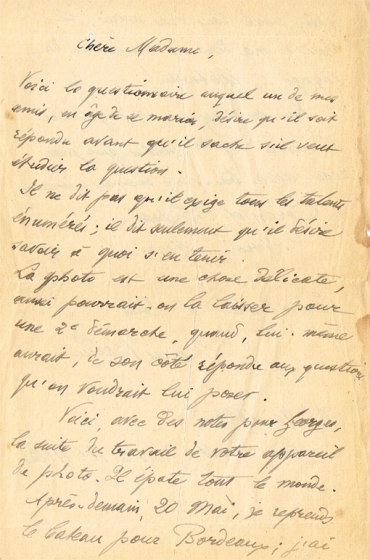 Chère Madame,
Voici le questionnaire auquel un de mes
amis, en âge de se marier, désire qu'il soit
répondu avant qu'il sache s'il veut
étudier la question.
Il ne dit pas qu'il exige tous les talents
énumérés ; il dit seulement qu'il désire
savoir à quoi s'en tenir.
La photo est une chose délicate,
aussi pourrait-on la laisser pour
une 2e démarche, quand, lui-même
aurait, de son côté répondu aux questions
qu'on voudrait lui poser.
Voici, avec des notes pour Georges,
la suite du travail de votre appareil
de photo. Il épate tout le monde.
Après-demain, 20 Mai, je reprends
le bateau pour Bordeaux ; j'ai